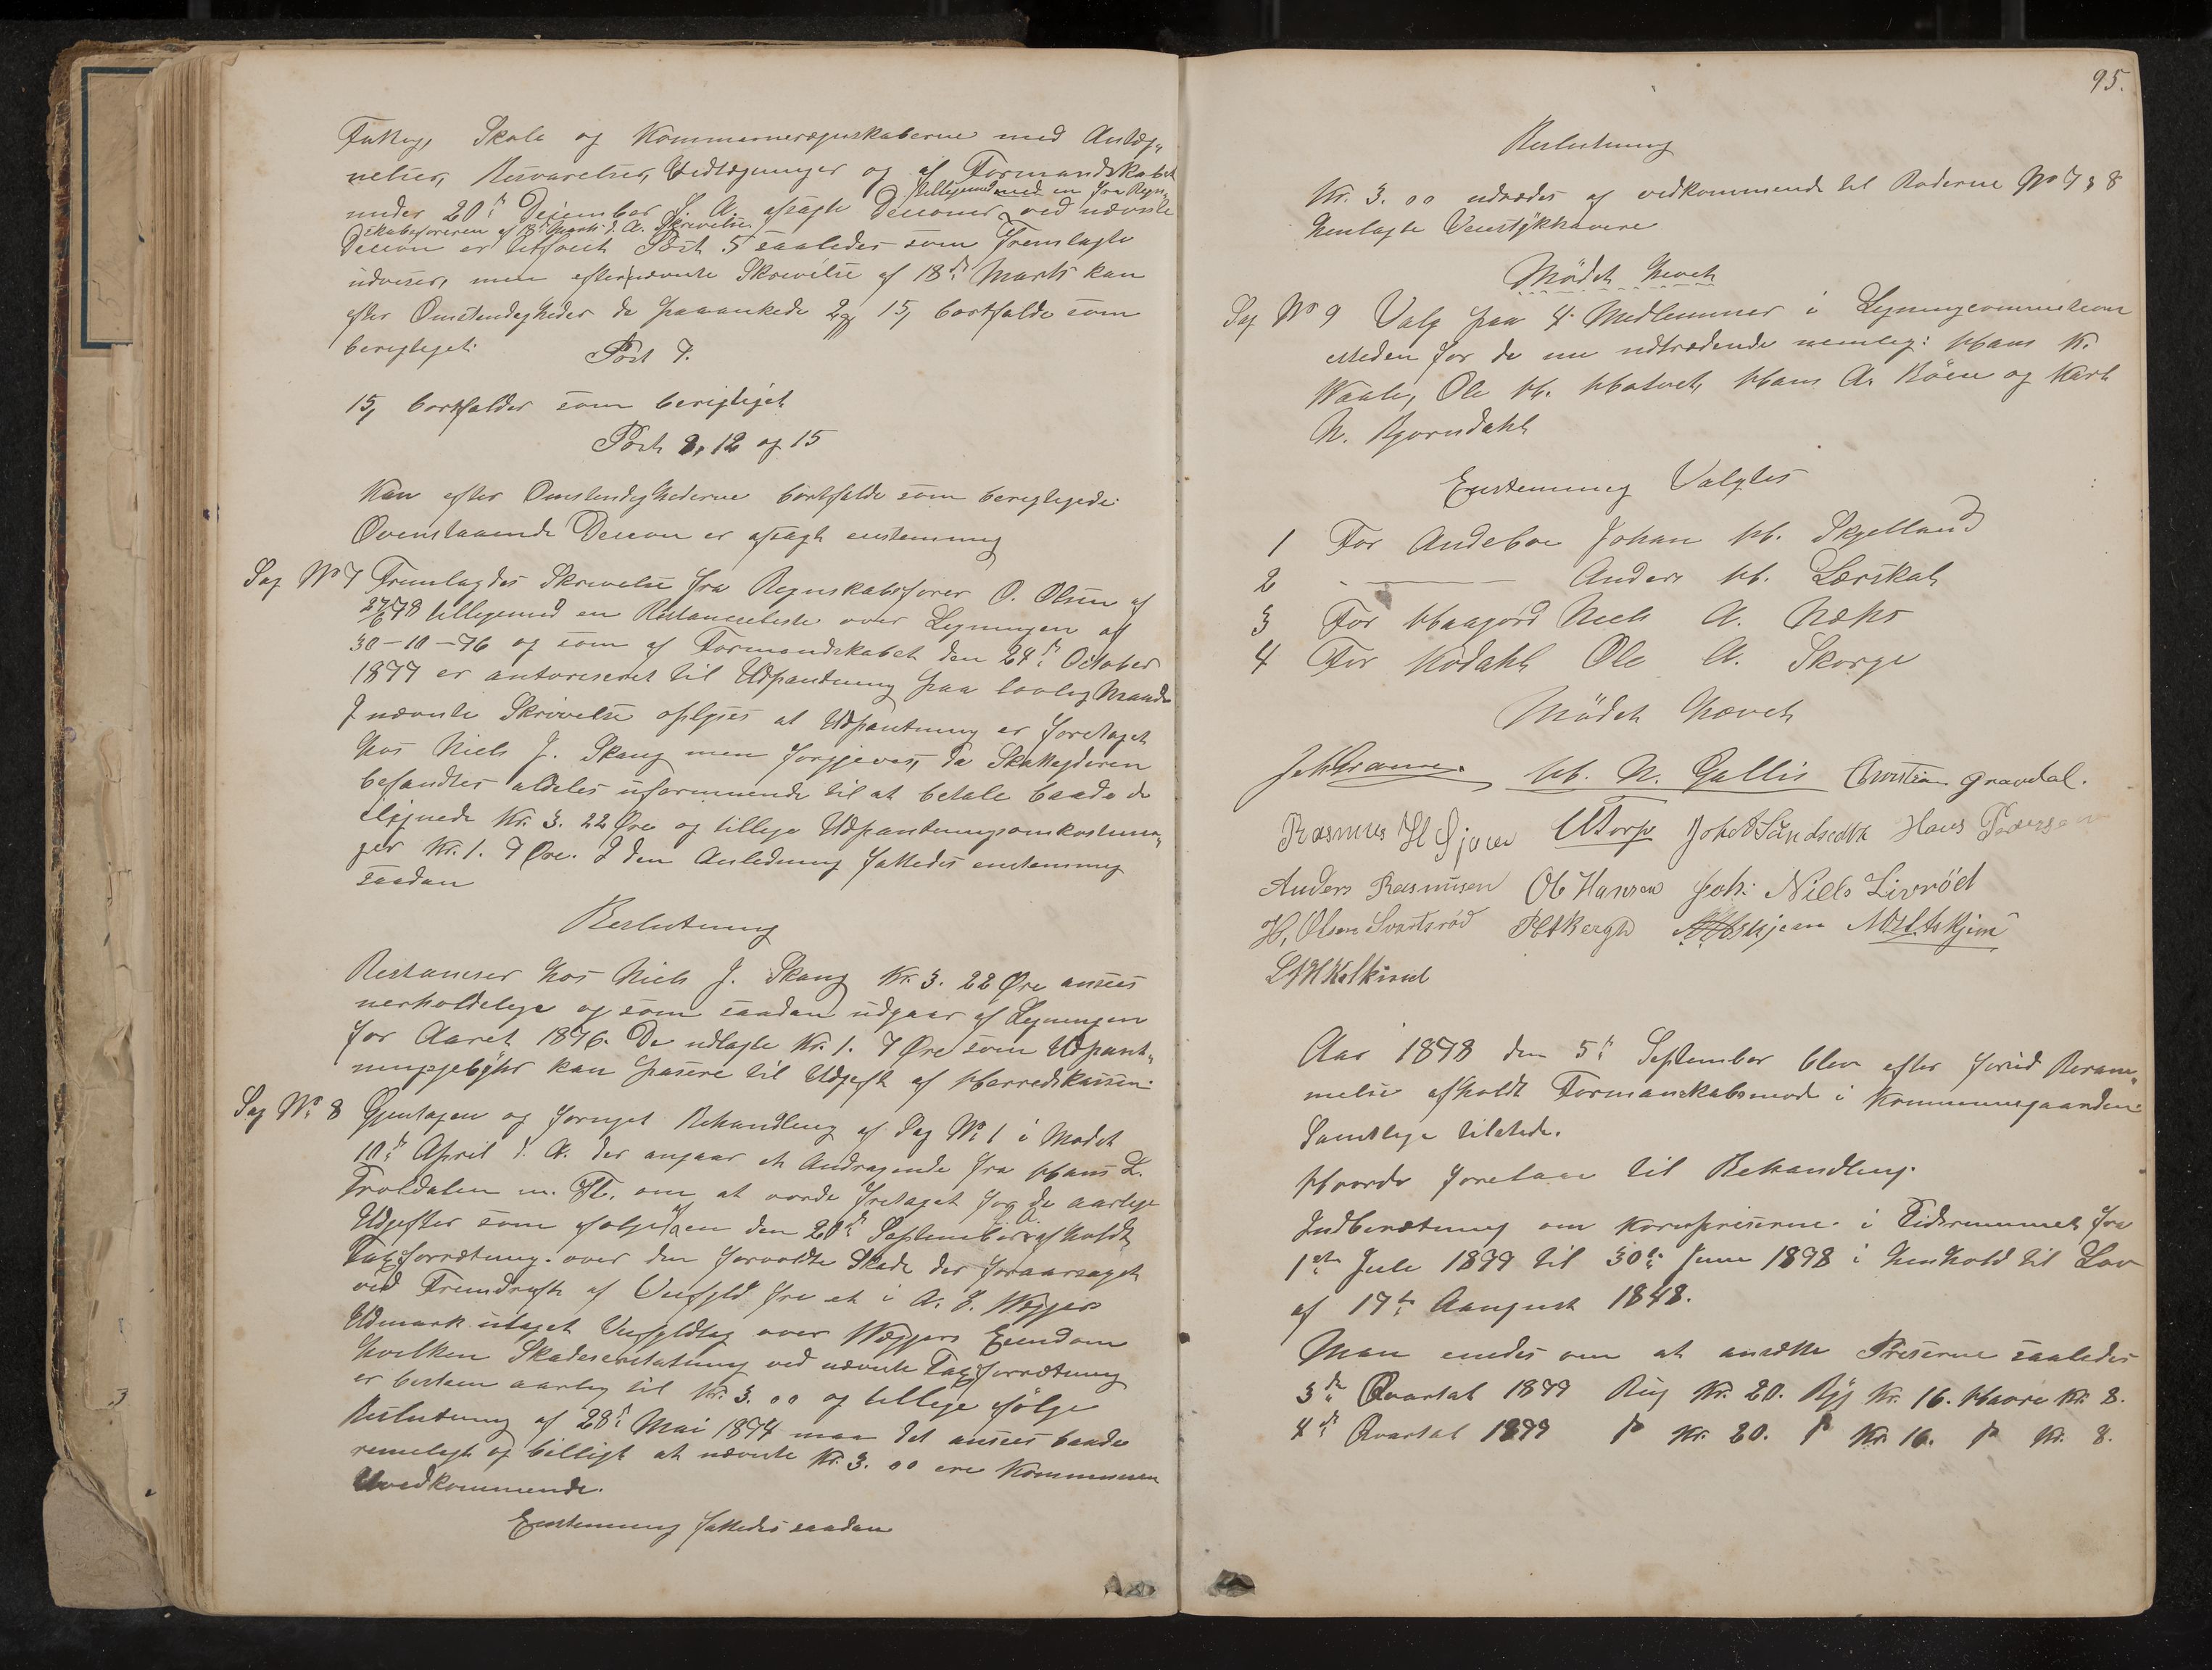 Fattig, Skole og Kommuneregnskaberne med Antæg„
nelser, Besvarelser, Vedtegninger og af Formandskabet
tilligemed med en fra Regn„
under 20de Dezember f. A. afsagte Decioner ved nævnte
skabsføreren af 18de Marts d. A. Skrivelse
Decion er Utførst Post 5 saaledes som Fremlagte
udviser, men efternævnte Skrivelse af 18de Marts kan
efter Omstendigheder de paaankede 2 og 15, bortfalde som
berigtiget.
Post 7.
15, bortfalder som berigtiget
Post 8, 12 og 15
Kan efter Omstendighederne bortfalde som berigtigede
Ovenstaaende Decion er afsagt enstemmig
Sag No 7 Fremlagdes Skrivelse fra Regnskabsfører O. Olsen af
27/6 78 tilligemed en Restanceliste over Ligningen af
30-10-76 og som af Formandskabet den 24de October
1877 er autoriseret til Udpantning paa lovlig Maade
I nævnte Skrivelse oplyses at Udpantning er foretaget
hos Niels J. Skaug men forgjeves, da Skatteyderen
befandtes aldeles uformuende til at betale baade de
ilignede Kr. 3. 22 Øre og tillige Udpantningsomkostnin„
ger Kr. 1. 7 Øre. I den Anledning fattedes enstemmig
saadan
Beslutning
Restancer hos Niels J. Skaug Kr. 3. 22 Øre ansees
uerholdelige og som saadan udgaar af Ligningen
for Aaret 1876. De udlagte Kr. 1. 7 Øre som Udpant„
ningsgebyhr kan pasere til Udgift af Herredskassen.
Sag No 8 Gjentagen og fornyet Behandling af Sag No 1 i Mødet
10de April d. A. der angaar et Andragende fra Hans L.
Troldalen m. Fl. om at vorde fritaget for de aarlige
Udgifter som følge af en den 20de September f. A. afholdt
Taxtforretning over den forvoldte Skade der foraarsaget
ved Fremdrift af Ungfeld fra et i A. E. Wegjers
Udmark utaget Ungfeldtag over Wegjers Eiendom
hvilken Skadeserstatning ved nævnte Taxtforretning
er bestem aarlig til Kr. 3. 00 og tillige ifølge
Beslutning af 28de Mai 1874 maa det ansees baade
rimeligt og billigt at nævnte Kr. 3. 00 ere Kommunen
Uvedkommende.
Enstemmig fattedes saadan
95.
Beslutning
Kr. 3. 00 udredes af vedkommende til Roderne No 7 & 8
henlagte Veistykkhavere
Mødet hevet
Sag No 9 Valg paa 4 Medlemmer i Ligningcommisionen
isteden for de nu udtrædende nemlig: Hans K.
Waale, Ole H. Hotvet, Hans A. Böen og Karl
N. Bjorndahl
Enstemmig Valgtes
1 For Andeboe Johan H. Skjelland
2 - — Anders H. Lerskal
3 For Haagjord Niels A. Næhs
4 For Kodahl Ole A. Skorge
Mødet hævet
H. N. Gallis Christian Gravdal.
Rasmus H Gjøen Torp Joh A Sundsedth Hans Pedersen
Anders Rasmusen Ole Hansen Joh: Niels Livröd
H, Olsen Svartsröd Bergh Askjem Askjem
Aar 1878 den 5te September blev efter forud Beram„
melse afholdt Formanskabsmøde i Kommunegaarden
Samtlige tilstede.
Hvorda foretaes til Behandling.
Indberætning om Kornpriserne i Tidsrummet fra
1ste Juli 1877 til 30te Juni 1878 i Henhold til Lov
af 17de Aaugust 1848.
Man enedes om at ansætte Priserne saaledes
3de Qvartal 1877 Rug Kr. 20. Byg Kr. 16. Havre Kr. 8.
4de Qvartal 1877 do Kr. 20. do Kr. 16. do Kr. 8.